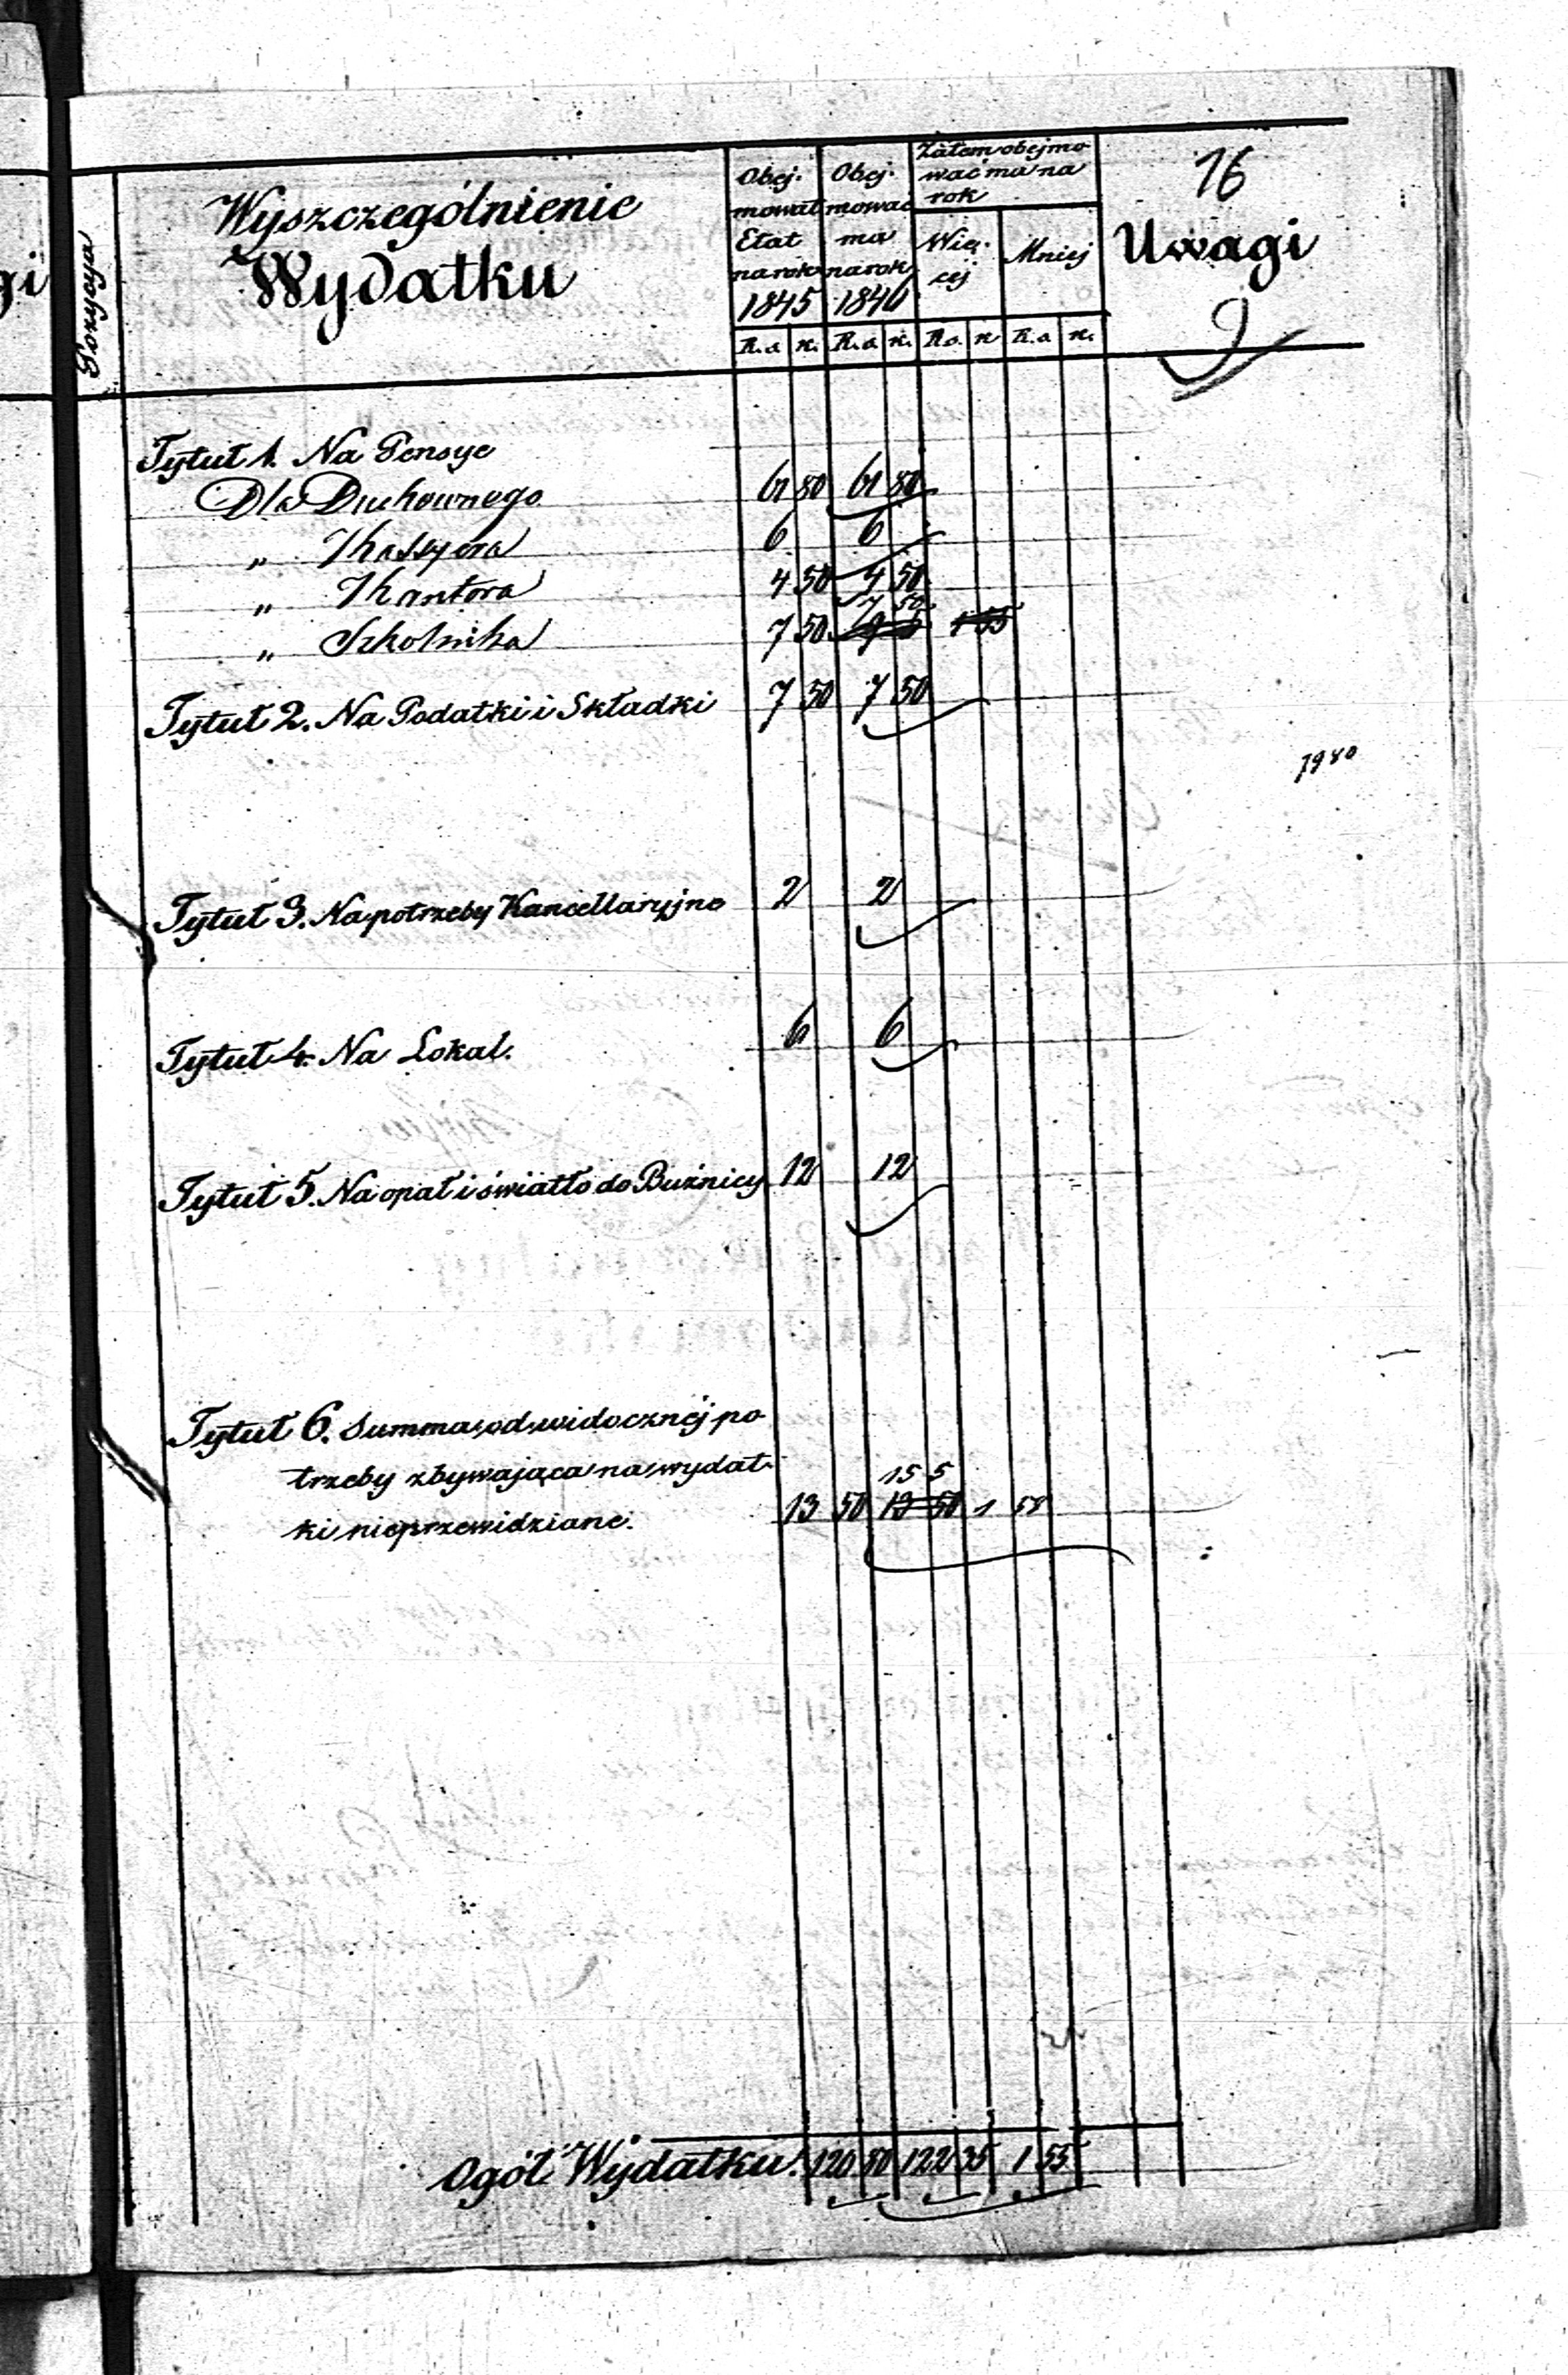 gi
Pozycya
Wyszczególnienie
Wydatku
Obej-
mował
Etat
na rok
1845
Obej-
mować
ma
na rok
1846
Zatem obejmo
wać ma na
rok
Wię-
cej
Mniej
16
Uwagi
R.a k. R.a k. R.o. k R.a k.
Tytuł 1. Na Pensye
Dla Duchownego. 61 80 61 80
„ Kassyera 6 6
„ Kantora 4 50 4 50
7 50
„ Szkolnika 7 50 9 5 1 55
Tytuł 2. Na Podatki i Składki 7 50 7 50
7980
Tytuł 3. Na potrzeby Kancellaryjne 2 2
Tytuł 4. Na Lokal. 6 6
Tytuł 5. Na opał i światło do Buźnicy 12 12
Tytuł 6. Summa od widocznéj po
trzeby zbywająca na wydat- 15 5
ki nieprzewidziane. 13 50 13 50 1 55
Ogół Wydatku. 120 80 122 35 1 55